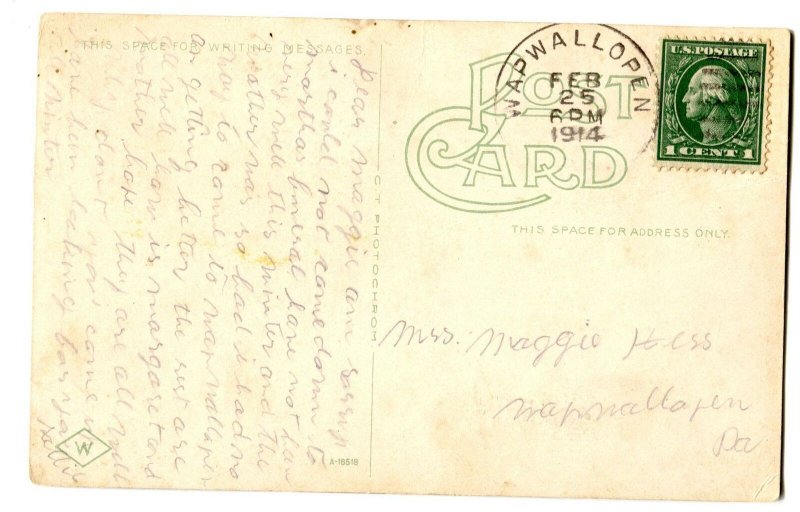 THIS SPACE FOR WRITING MESSAGES.
Dear maggie am sorry
i could not come down to
marthas funeral have not ben
very well this winter and the
weather was so bad i had no
way to come to wapwallopen
am getting better the rest are
all well how is margaret and
mother hope they are all well
why dont you come up
i have ben looking for you
all winter
CT PHOTOCHROM
W
A-16518
POST CARD
WAPWALLOPEN
FEB
25
6 PM
1914
U.S. POSTAGE
1 CENT 1
THIS SPACE FOR ADDRESS ONLY.
Mrs. Maggie Hess
Wapwallopen
Pa